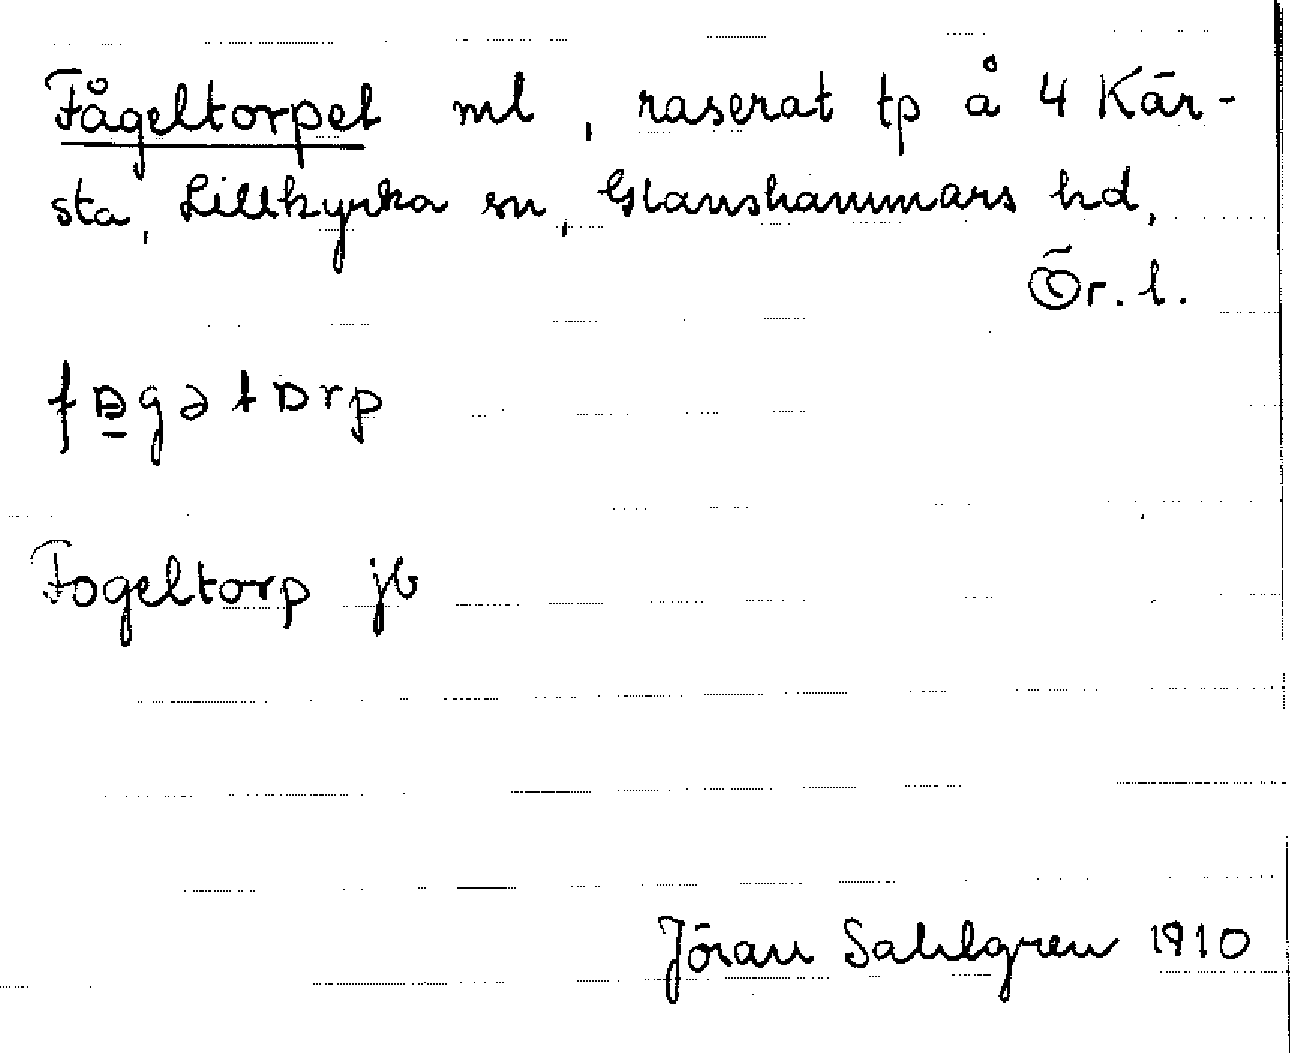 Fågeltorpet ml, raserat tp å 4 Kär-
sta, Lillkyrka sn, Glanshammars hd,
Ör. l.
fɒ̲gətɒrp
Fogeltorp jb
Jöran Sahlgren 1910